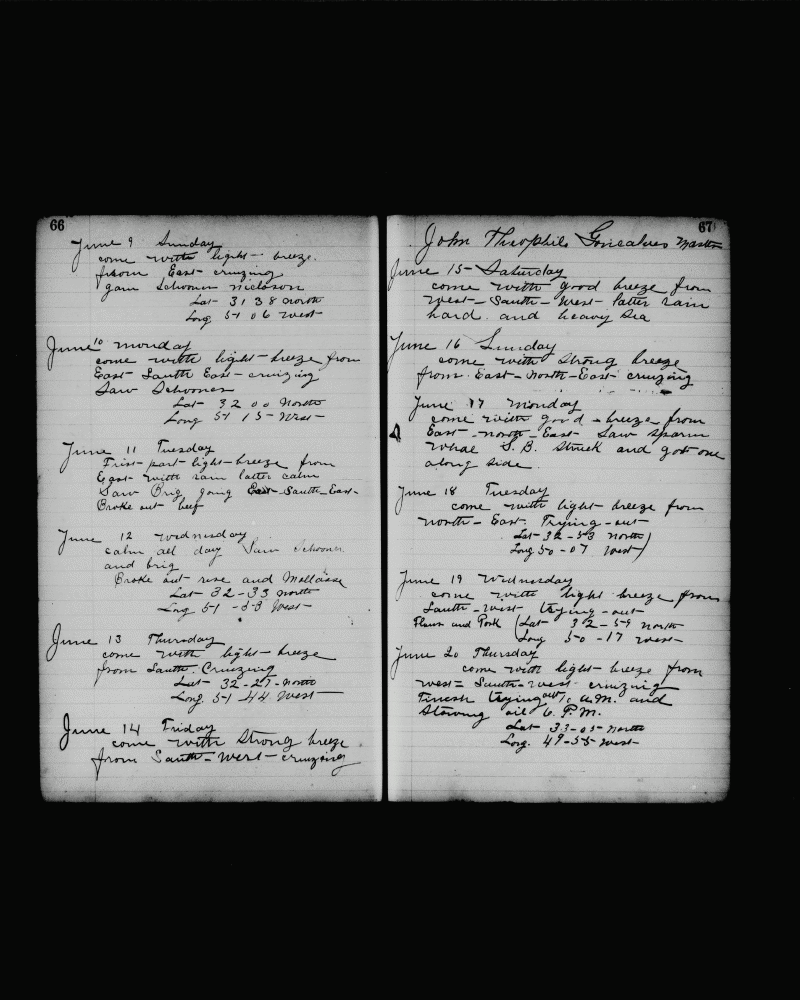 66
June 9 Sunday
come with light breeze
from East cruizing
gam Schooner Nickason
Lat 31 38 North
Long 51 06 West
June 10 Monday
come with light breeze from
East South East cruizing
Saw Schooner
Lat 32 00 North
Long 51 15 West
June 11 Tuesday
Frist part light breeze from
East with rain latter calm
Saw Brig going East-South-East-
Broke out beef
June 12 Wednisday
calm all day Saw Schooner
and brig
Broke out rise and Mollasse
Lat 32-33 North
Long 51-33 West
June 13 Thursday
come with light breeze
from South. Cruizing
Lat 32-27 North
Long 51 44 West
June 14 Friday
come with Strong breeze
from South-West cruizing
67
John Theophilo Goncalves Master
June 15 Saturday
come with good breeze from
West-South-West latter rain
hard and heavy Sea
June 16 Sunday
come with Strong breeze
from East-North-East cruizing
June 17 Monday
come with good breeze from
East-North-East Saw Sparm
Whae S. B. Struck and got one
along Side.
June 18 Tuesday
come with light breeze from
North-East. Trying-out
Lat 32-53 North)
Long 50-07 West)
June 19 Wednisday
come with light breeze from
South-West Trying-out
Flour and Pork (Lat 32-59 North
Long 50-17 West
June 20 Thursday
come with light breeze from
West-South-West cruizing
Finish trying out A.M. and
Stowing oil 6. P.M.
Lat 33-05 North
Long. 49-55 West